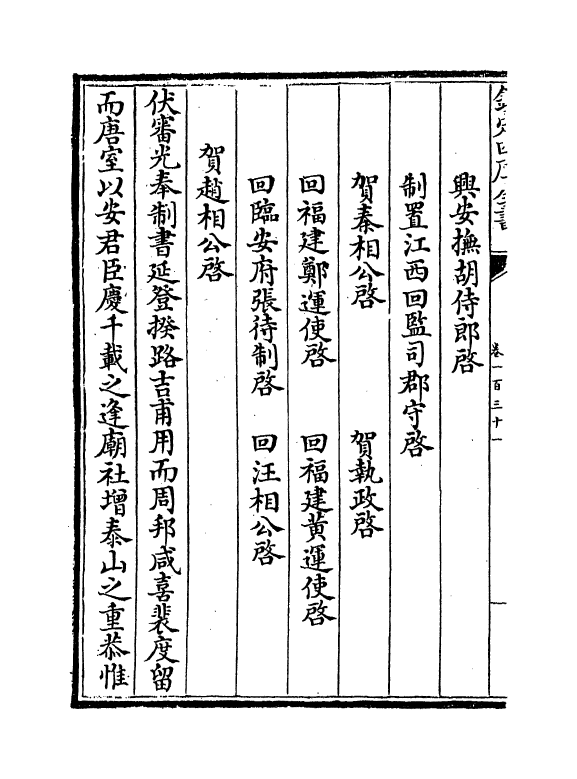 欽定四庫全書
卷一百三十一
興安撫胡侍郎啓
制置江西回監司郡守啓
賀秦相公啓　賀執政啓
回福建鄭運使啓　回福建黃運使啓
回臨安府張待制啓　回汪相公啓
賀趙相公啓
伏審光奉制書延登揆路吉甫用而周邦咸喜裴度留
而唐室以安君臣慶千載之逢廟社增泰山之重恭惟